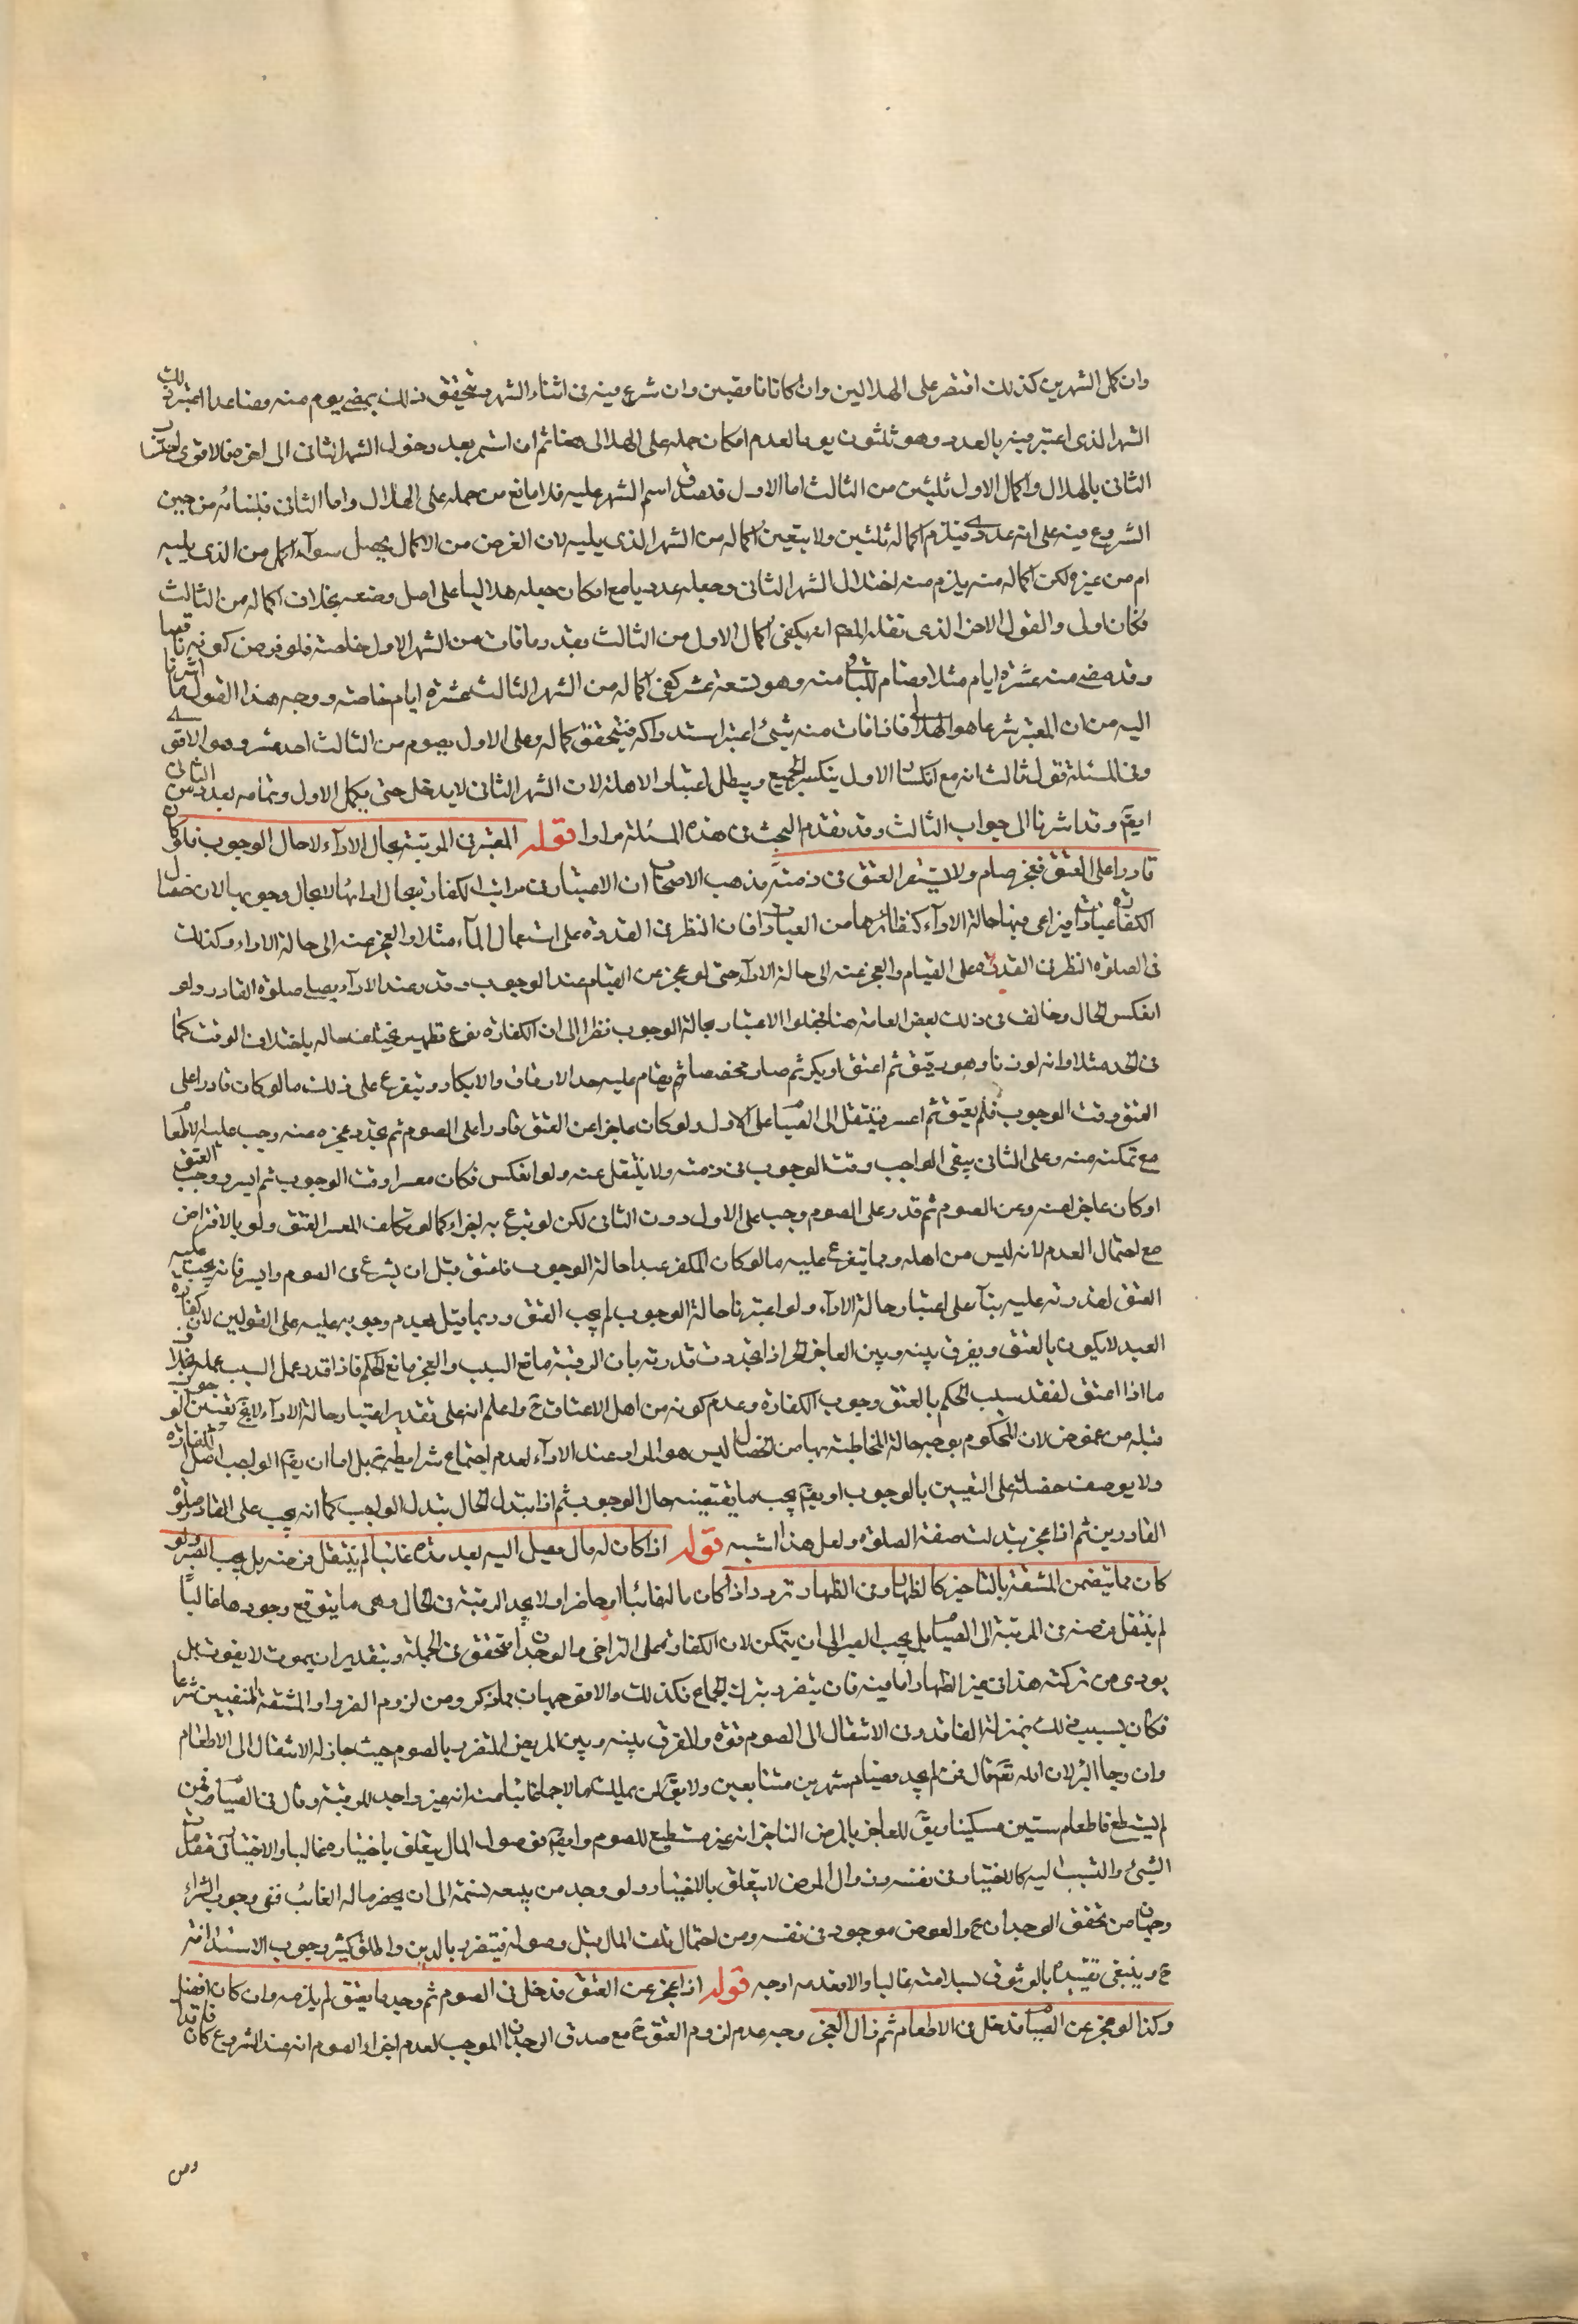 وان كمل الشهرين كذلك اقتصر على الهلالين وان كانا ناقصين وان شرع فيه فى اثناء الشهر ويتحقق ذلك بمضى يوم منه فصاعدا اعتبر ذلك
الشهر الذى اعتبر فيه بالعدد وهو ثلثون يوما لعدم امكان حمله على الهلالى هنا ثم ان استمر بعد دخول الشهر الثانى الى اخره فالاقوى احتساب
الثانى بالهلال واكمال الاول ثلثين من الثالث اما الاول فلصدق اسم الشهر عليه فلا مانع من حمله على الهلال واما الثانى فلبنائه من حين
الشروع فيه على انه عددى فيلزم اكماله ثلثين ولا يتعين اكماله من الشهر الذى يليه لان الغرض من الاكمال يحصل سوآء اكمل من الذى يليه
ام من غيره لكن اكماله منه يلزم منه اختلال الشهر الثانى وجعله عدديا مع امكان جعله هلاليا على اصل وضعه بخلاف اكماله من الثالث
فكان اولى والقول الاخر الذى نقله المصـ انه يكفى اكمال الاول من الثالث بقدر ما فات من الشهر الاول خاصة فلو فرض كونه ناقصا
وقد مضى منه عشرة ايام مثلا فصام الباقى منه وهو تسعة عشر كفى اكماله من الشهر الثالث عشرة ايام خاصة ووجه هذا القول ما اشرنا
اليه من ان المعتبر شرعا هو الهلالى فاذا فات منه شىء اعتبر استدراكه فيتحقق كماله وعلى الاول يصوم من الثالث احد عشر وهو الاقوى
وفى المسئلة قول ثالث انه مع انكسار الاول ينكسر الجميع ويبطل اعتبار الاهلة لان الشهر الثانى لا يدخل حتى يكمل الاول وتمامه بعدد من الثانى
ايضـ وقد اشرنا الى جواب الثالث وقد تقدم البحث فى هذه المسئلة مرارا قوله المعتبر فى المرتبة بحال الاداء لا حال الوجوب فلو كان
قادرا على العتق فعجز صام ولا يستقر العتق فى ذمته مذهب الاصحاب ان الاعتبار فى مراتب الكفارة بحال ادائها لا بحال وجوبها لان خصال
الكفارة عبادات فيراعى فيها حالة الاداء كنظائرها من العبادات فان النظر فى القدرة على استعمال الماء مثلا والعجز عنه الى حالة الاداء وكذلك
فى الصلوة النظر فى القدرة على القيام والعجز عنه الى حالة الادآء حتى لو عجز عن القيام عند الوجوب وقدر عند الادآء يصلى صلوة القادر ولو
انعكس الحال وخالف فى ذلك بعض العامة هنا فجعلوا الاعتبار بحالة الوجوب نظرا الى ان الكفارة نوع تطهير يختلف حاله باختلاف الوقت كما
فى الحد مثلا وانه لو زنا وهو رقيق ثم اعتق او بكر ثم صار محصنا ثم يقام عليه حد الارقاء والابكار ويتفرع على ذلك ما لو كان قادرا على
العتق وقت الوجوب فلم يعتق ثم اعسر فينتقل الى الصيام على الاول ولو كان عاجزا عن العتق قادرا على الصوم ثم تجدد عجزه عنه وجب عليه الاطعام
مع تمكنه منه وعلى الثانى يبقى الواجب وقت الوجوب فى ذمته ولا ينتقل عنه ولو انعكس فكان معسرا وقت الوجوب ثم ايسر وجب العتق
او كان عاجزا عنه وعن الصوم ثم قدر على الصوم وجب على الاول دون الثانى لكن لو تبرع به اجزاء كما لو تكلف المعسر العتق ولو بالاقتراض
مع احتمال العدم لانه ليس من اهله ومما يتفرع عليه ما لو كان المكفر عبدا حالة الوجوب فاعتق قبل ان يشرع فى الصوم وايسر فانه يجب عليه
العتق لقدرته عليه بنآء على اعتبار حالة الادآء ولو اعتبرنا حالة الوجوب لم يجب العتق وربما قيل بعدم وجوبه عليه على القولين لان كفارة
العبد لا يكون بالعتق ويفرق بينه وبين العاجز الحر اذا تجددت قدرته بان الرقية مانع السبب والعجز مانع الحكم فاذا قدر عمل السبب عمله بخلاف
ما اذا اعتق لفقد سبب الحكم بالعتق وجوب الكفارة وعدم كونه من اهل الاعتاق ح واعلم انه على تقدير اعتبار حالة الادآء لا يخـ تعيين الوجوب
قبله من غموض لان المحكوم بوجوبه حالة المخاطبة بها من الخصال ليس هو المراد عند الادآء لعدم اجتماع شرايطه ح بل اما ان يقـ الواجب اصل الكفارة
ولا يوصف خصلة على التعيين بالوجوب او يقـ يجب ما يقتضيه حال الوجوب ثم اذا تبدل الحال تبدل الواجب كما انه يجب على القادر صلوة
القادرين ثم اذا عجز تبدلت صفة الصلوة ولعل هذا اشبه قوله اذا كان له مال يصل اليه بعد مدة غالبا لم ينتقل فرضه بل يجب الصبر ولو
كان مما يتضمن المشقة بالتاخير كالظهار وفى الظهار تردد اذا كان ماله غائبا او حاضرا ولا يجد الرقبة فى الحال وهى ما يتوقع وجودها غالبًا
لم ينتقل فرضه فى المرتبة الى الصيام بل يجب الصبر الى ان يتمكن لان الكفارة على التراخى والوجدان متحقق فى الجملة وبتقدير ان يموت لا يفوت بل
يودى من تركته هذا فى غير الظهار اما فيه فان يتضرر بترك الجماع فكذلك والا فوجهان مما ذكر ومن لزوم الضرر او المشقة المنفيين شرعا
فكان بسبب ذلك بمنزلة الفاقد وفى الانتقال الى الصوم قوة والفرق بينه وبين المريض المتضرر بالصوم حيث جاز له الانتقال الى الاطعام
وان رجا البرء لان الله تعـ قال فمن لم يجد فصيام شهرين متتابعين ولا يقـ لمن يملك مالا جما غائبا عنه انه غير واجد للرقبة وقال فى الصيام فمن
لم يستطع فاطعام ستين مسكينا ويقـ للعاجز بالمرض الناجز انه غير مستطيع للصوم وايضـ فوصول المال يتعلق باختياره غالبا والاختيار فى مقدمات
الشىء والتسبب اليه كالاختيار فى نفسه وزوال المرض لا يتعلق بالاختيار ولو وجد من يبيعه نسئة الى ان يحضر ماله الغائب ففى وجوب الشراء
وجهان من تحقق الوجدان ح والعوض موجود فى نفسه ومن احتمال تلف المال قبل وصوله فيتضرر بالدين واطلق كثير وجوب الاستدانة
ح وينبغى تقييده بالوثوق بسلامته غالبا والا فعدمه اوجه قوله اذا عجز عن العتق فدخل فى الصوم ثم وجد ما يعتق لم يلزمه وان كان افضل
وكذا لو عجز عن الصيام فدخل فى الاطعام ثم زال العجز وجه عدم لزوم العتق ح مع صدق الوجدان الموجب لعدم اجزاء الصوم انه عند الشروع كان فاقدا
ومن